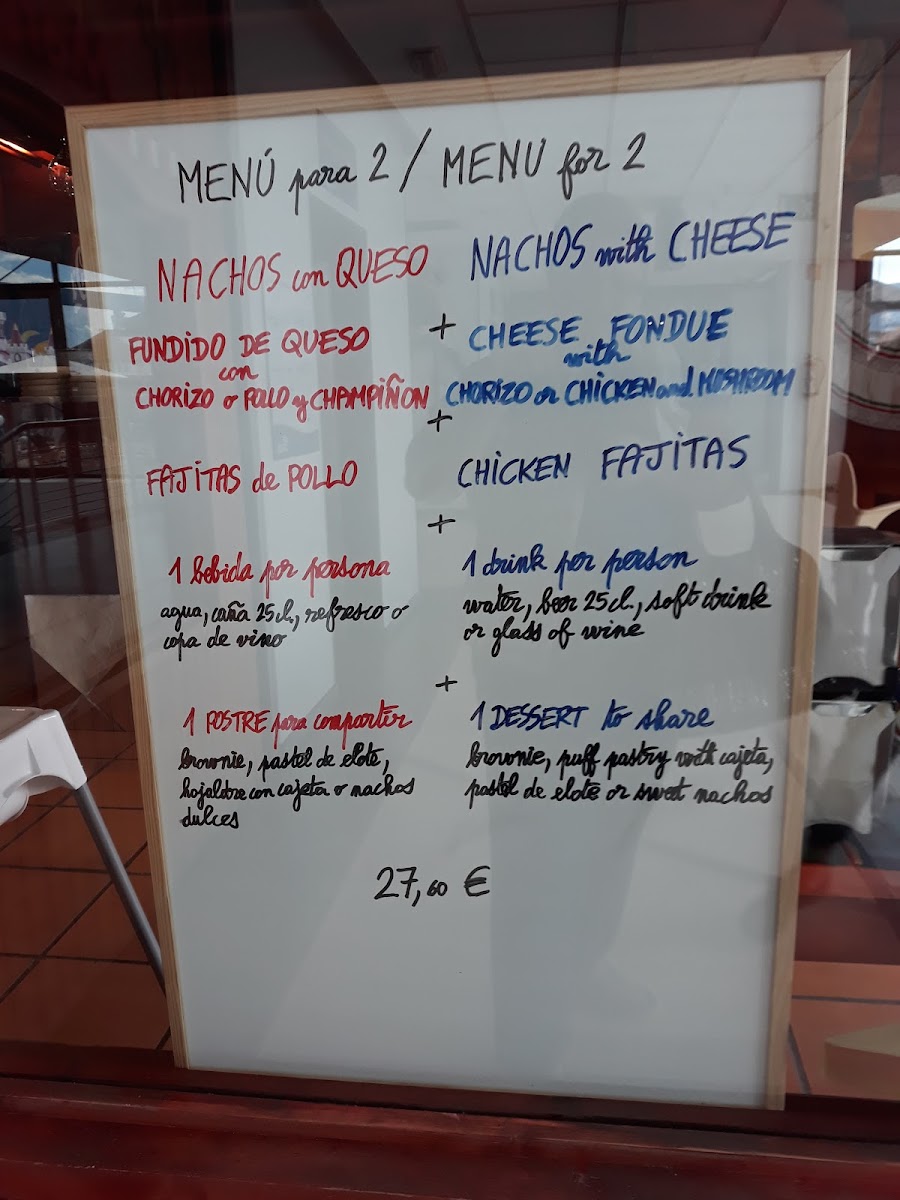 MENÚ para 2 / MENU for 2
NACHOS con QUESO
NACHOS with CHEESE
+
FUNDIDO DE QUESO
con
CHORIZO o POLLO y CHAMPIÑON
CHEESE FONDUE
with
CHORIZO or CHICKEN and MUSHROOM
+
FAJITAS de POLLO
CHICKEN FAJITAS
+
1 bebida por persona
agua, caña 25cl., refresco o
copa de vino
1 drink per person
water, beer 25cl., soft drink
or glass of wine
+
1 POSTRE para compartir
brownie, pastel de elote,
hojaldre con cajeta o nachos
dulces
1 DESSERT to share
brownie, puff pastry with cajeta,
pastel de elote or sweet nachos
27,60 €